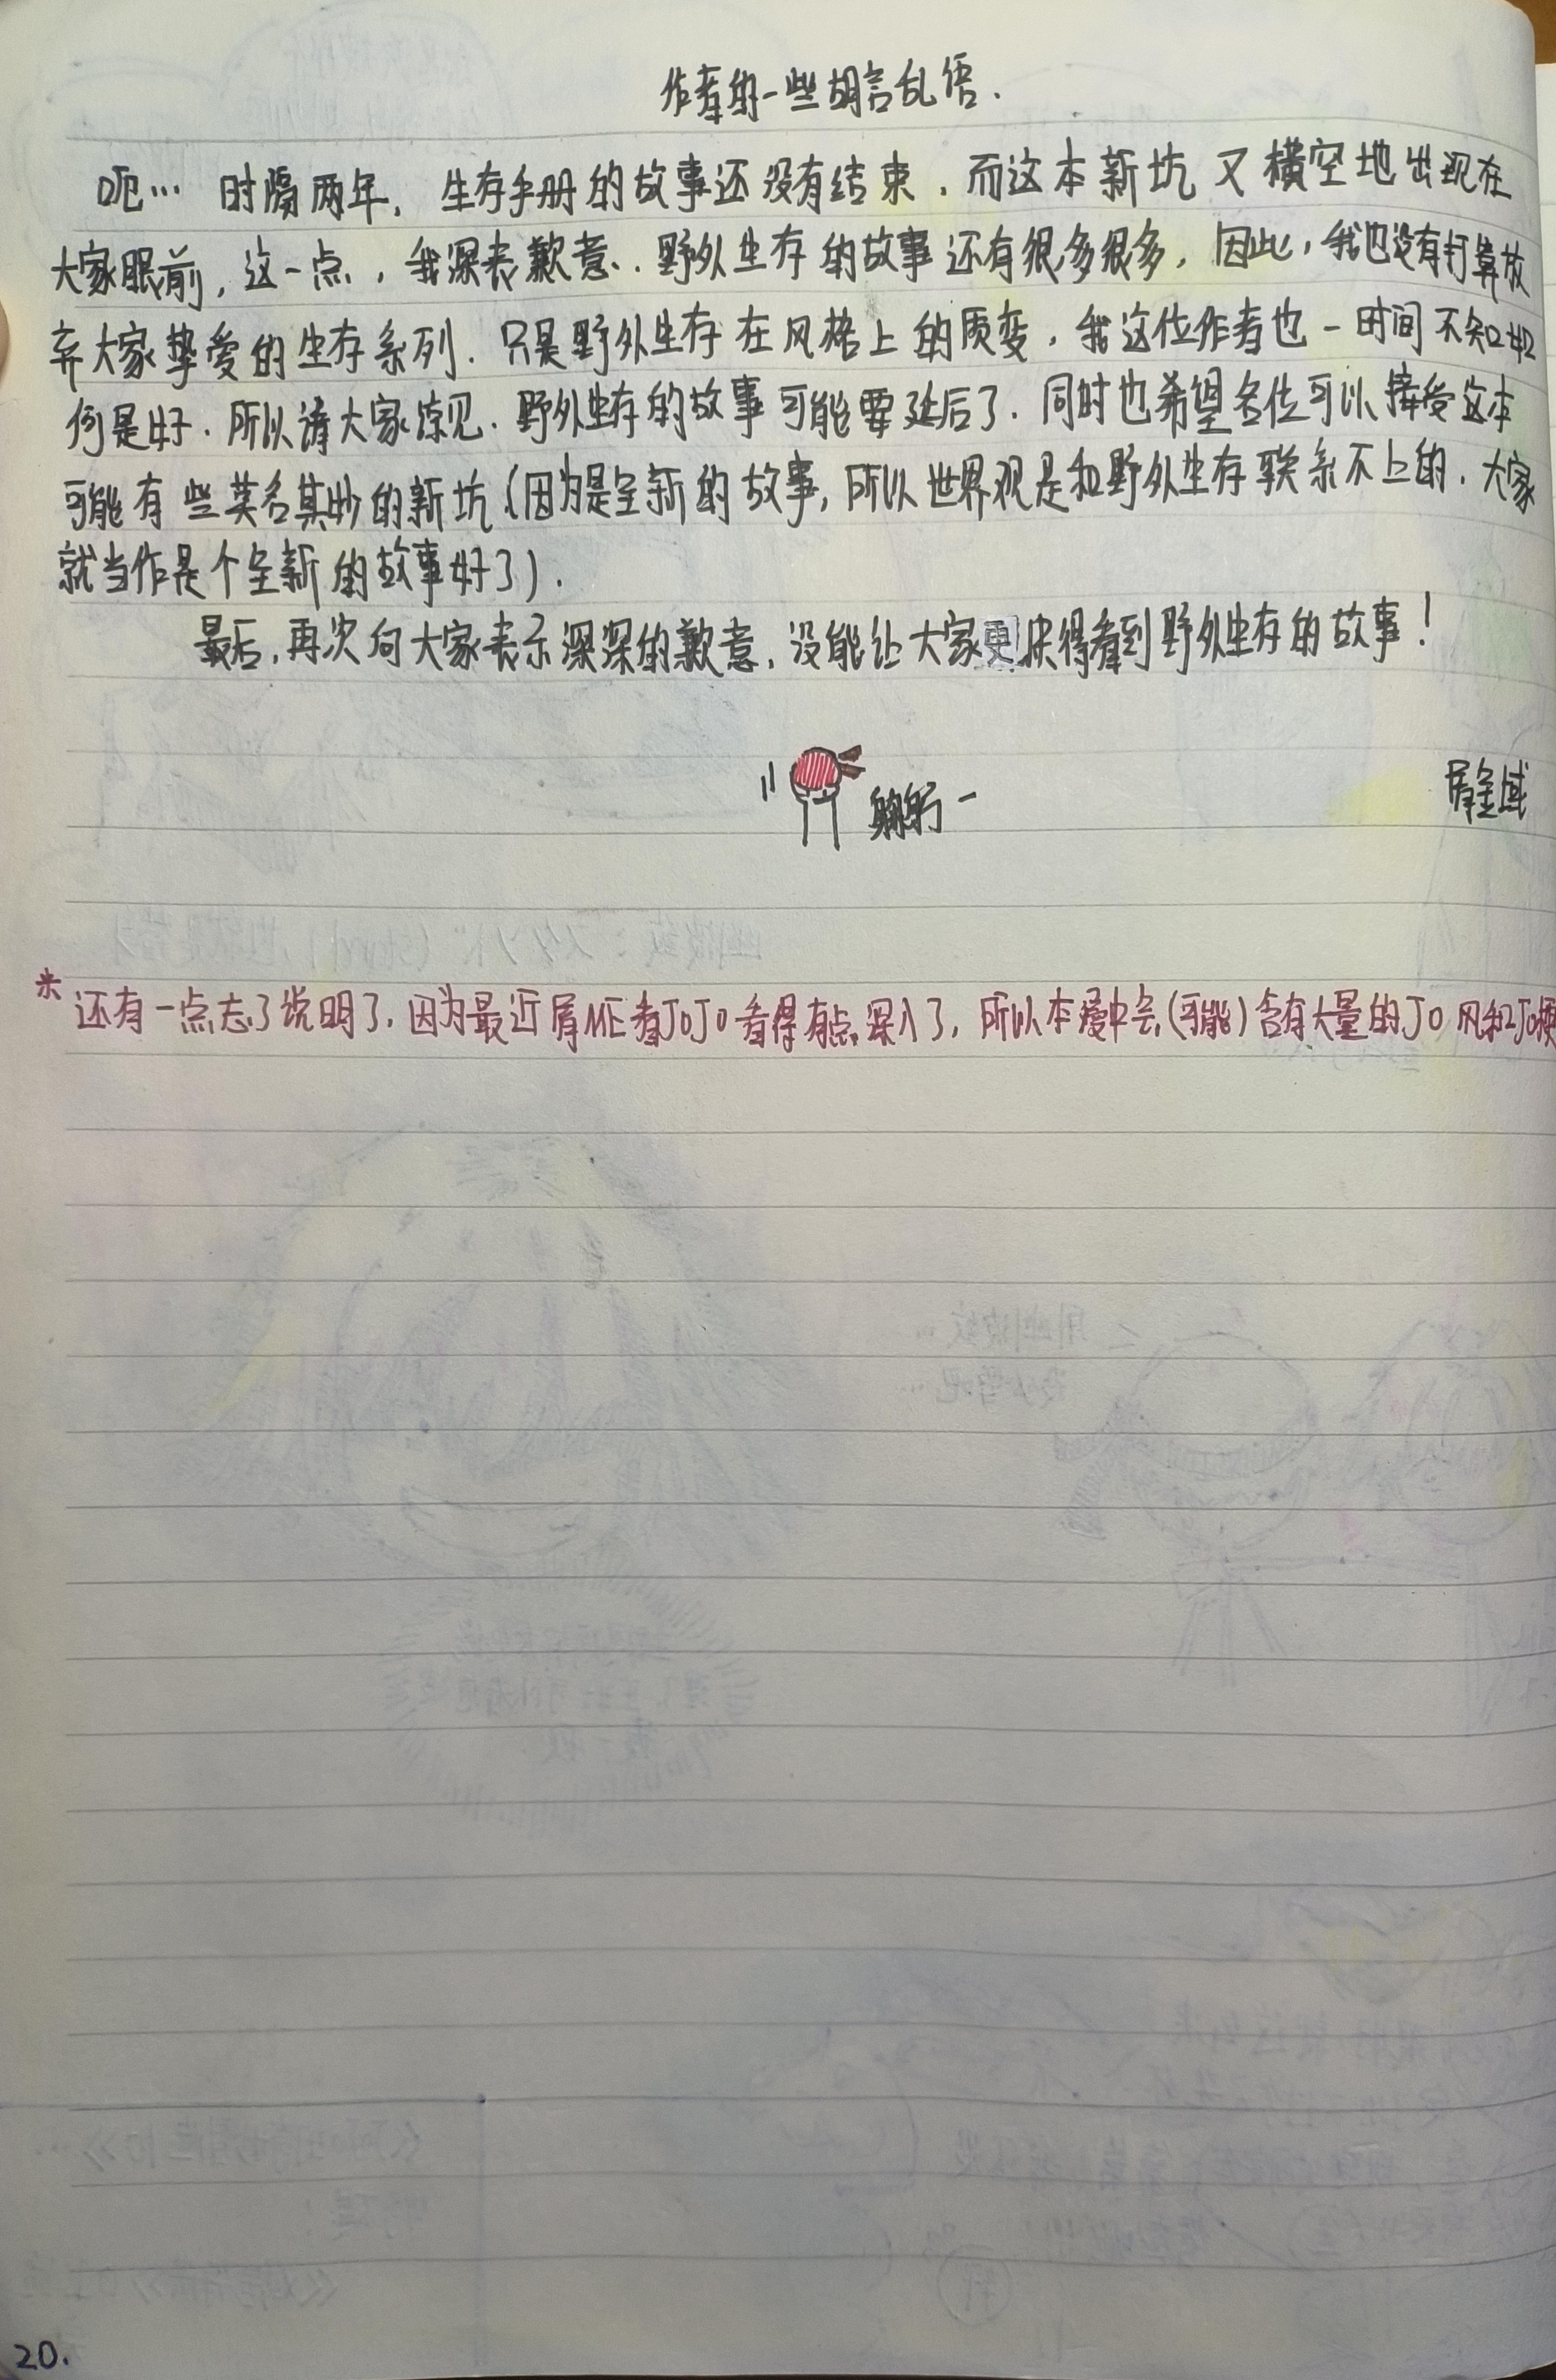 作者的一些胡言乱语.
呃… 时隔两年, 生存手册的故事还没有结束, 而这本新坑又横空地出现在
大家眼前, 这一点, 我深表歉意.. 野外生存的故事还有很多很多, 因此, 我也没有打算放
弃大家挚爱的生存系列. 只是野外生存在风格上的质变, 我这位作者也一时间不知如
何是好. 所以请大家谅见. 野外生存的故事可能要延后了. 同时也希望各位可以接受这本
可能有些莫名其妙的新坑(因为是全新的故事, 所以世界观是和野外生存联系不上的, 大家
就当作是个全新的故事好了).
最后, 再次向大家表示深深的歉意, 没能让大家更快得看到野外生存的故事!
鞠躬-
屑全域
*还有一点忘了说明了, 因为最近屑ME看JOJO看得有点深入了, 所以本漫中会(可能)含有大量的JO风和JO梗
20.